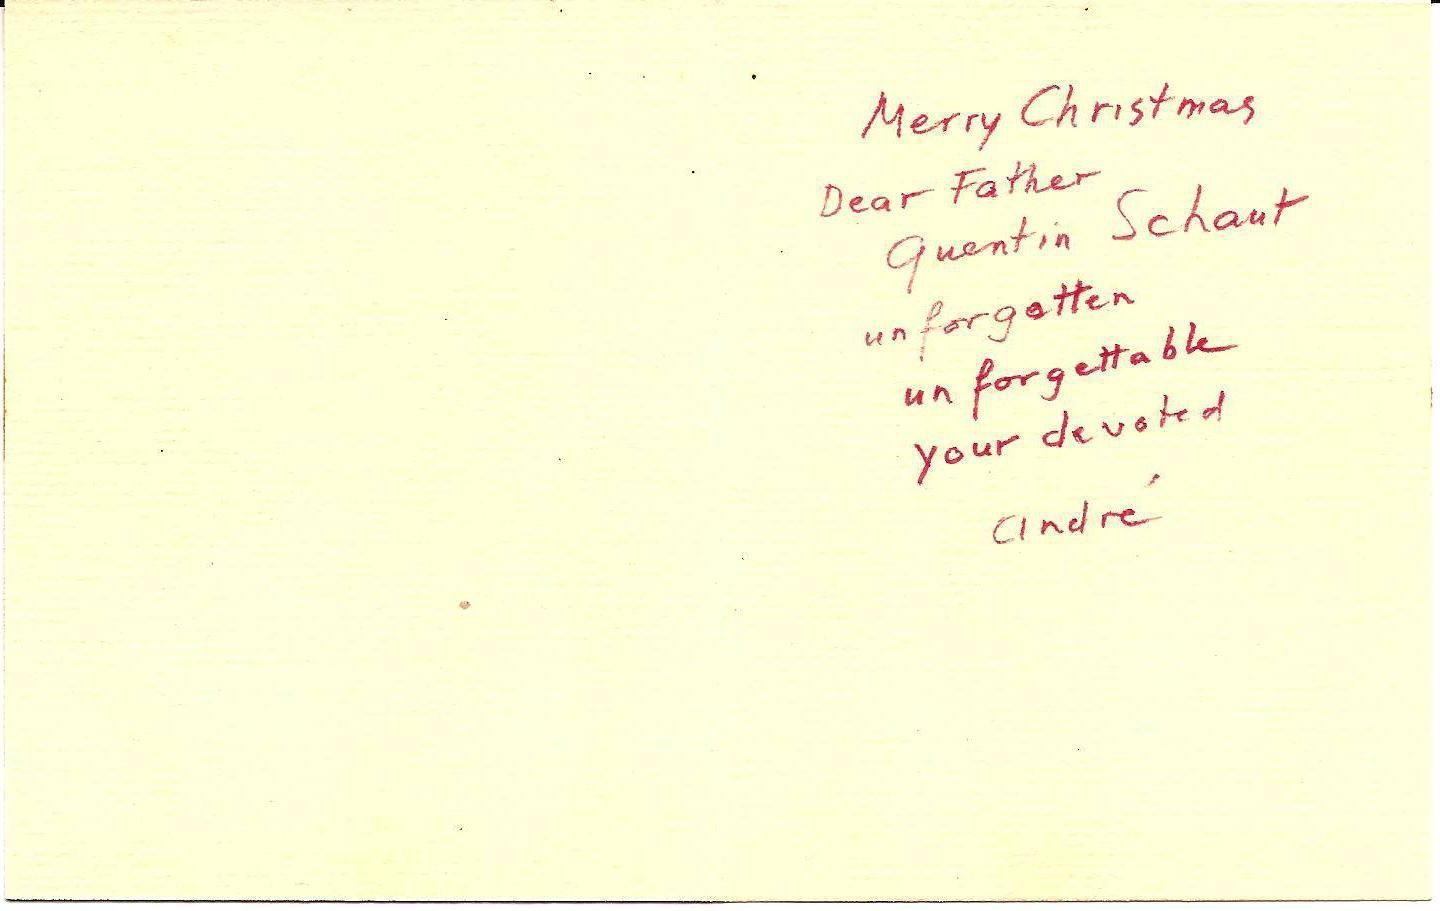 Merry Christmas
Dear Father
Quentin Schaut
unforgotten
unforgettable
your devoted
André